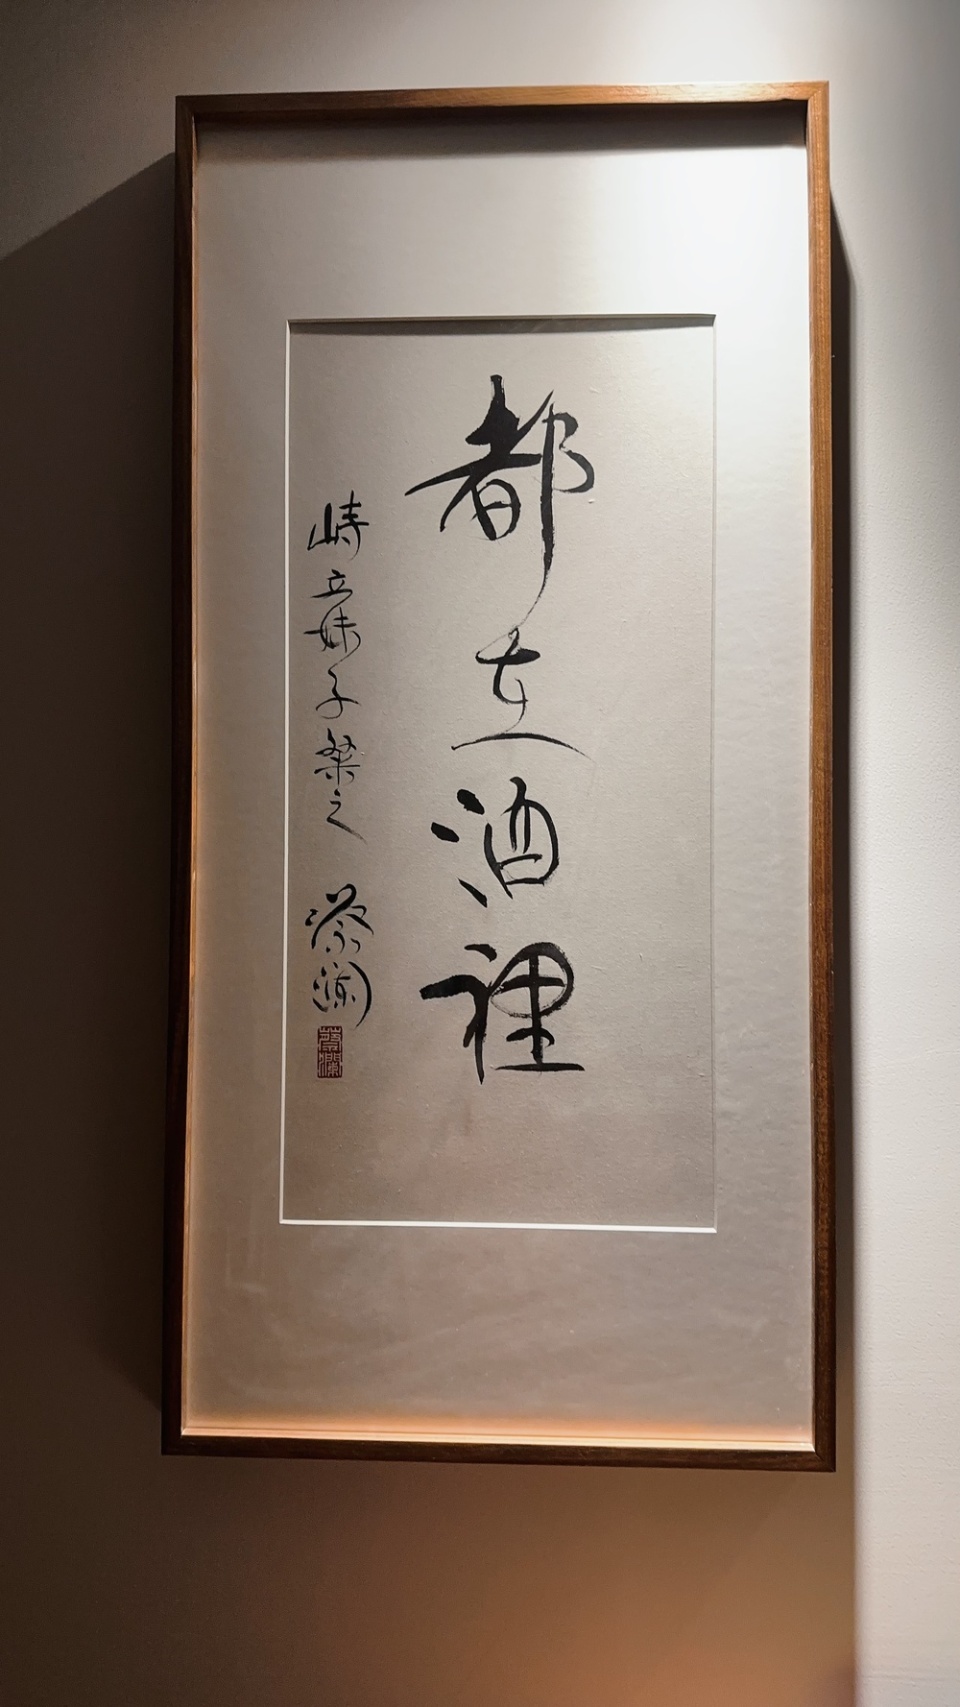 都在酒裡
峙立妹子粲之
蔡瀾
蔡瀾